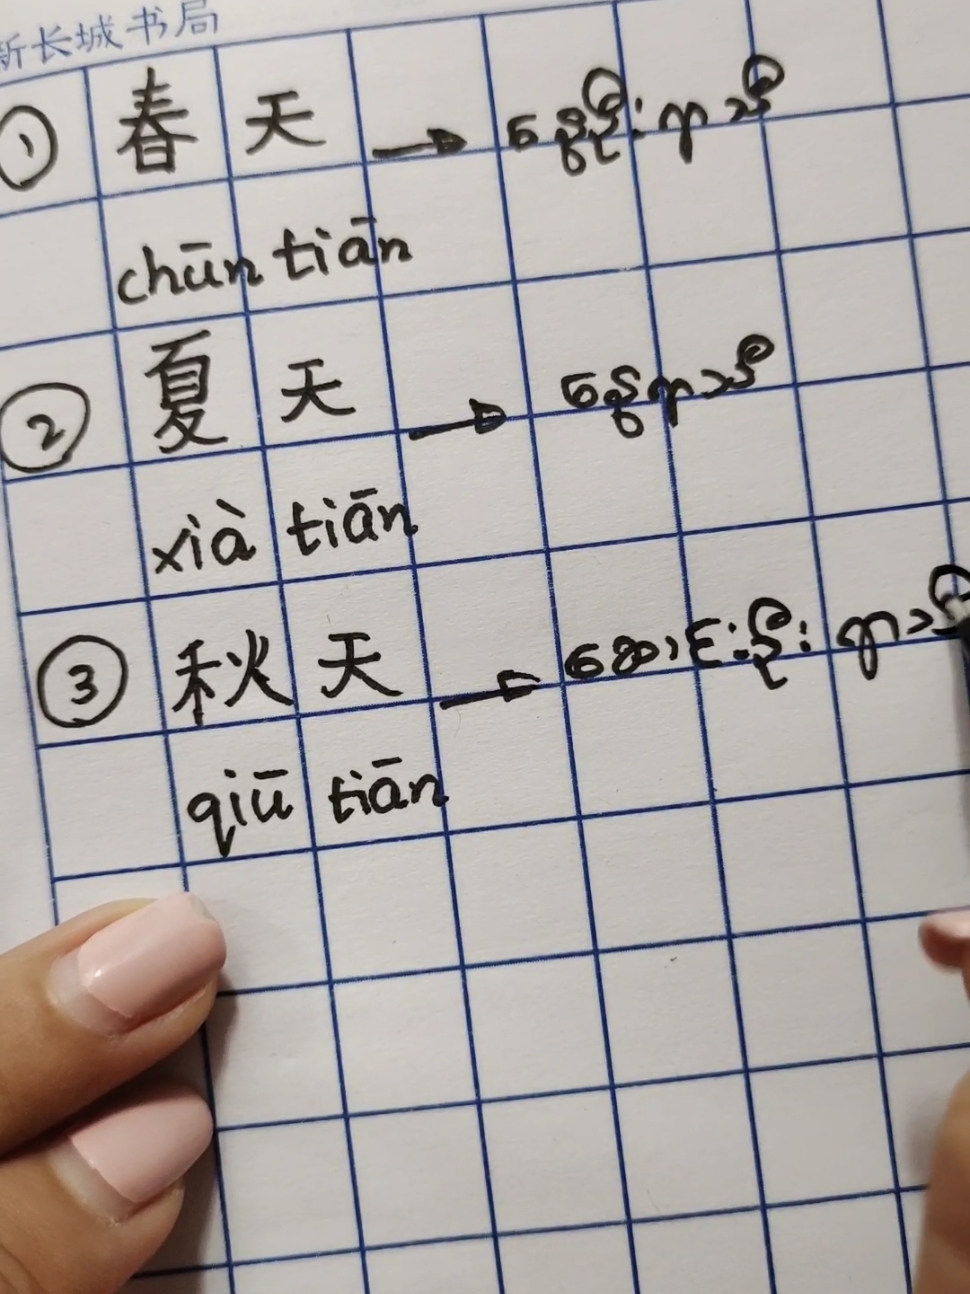 新长城书局
① 春天 → နွေဦးရာသီ
chūn tiān
② 夏天 → နွေရာသီ
xià tiān
③ 秋天 → ဆောင်းဦးရာသီ
qiū tiān